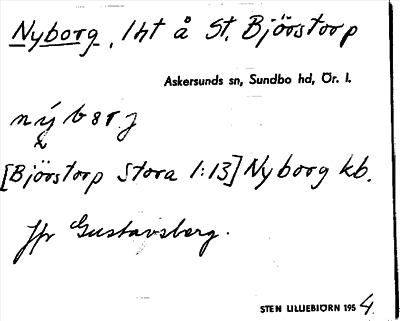 Nyborg, lht å St. Björstorp
Askersunds sn, Sundbo hd, Ör. l.
[Björstorp Stora 1:13] Nyborg kb.
Jfr Gustavsberg.
STEN LILLIEBJÖRN 1954.